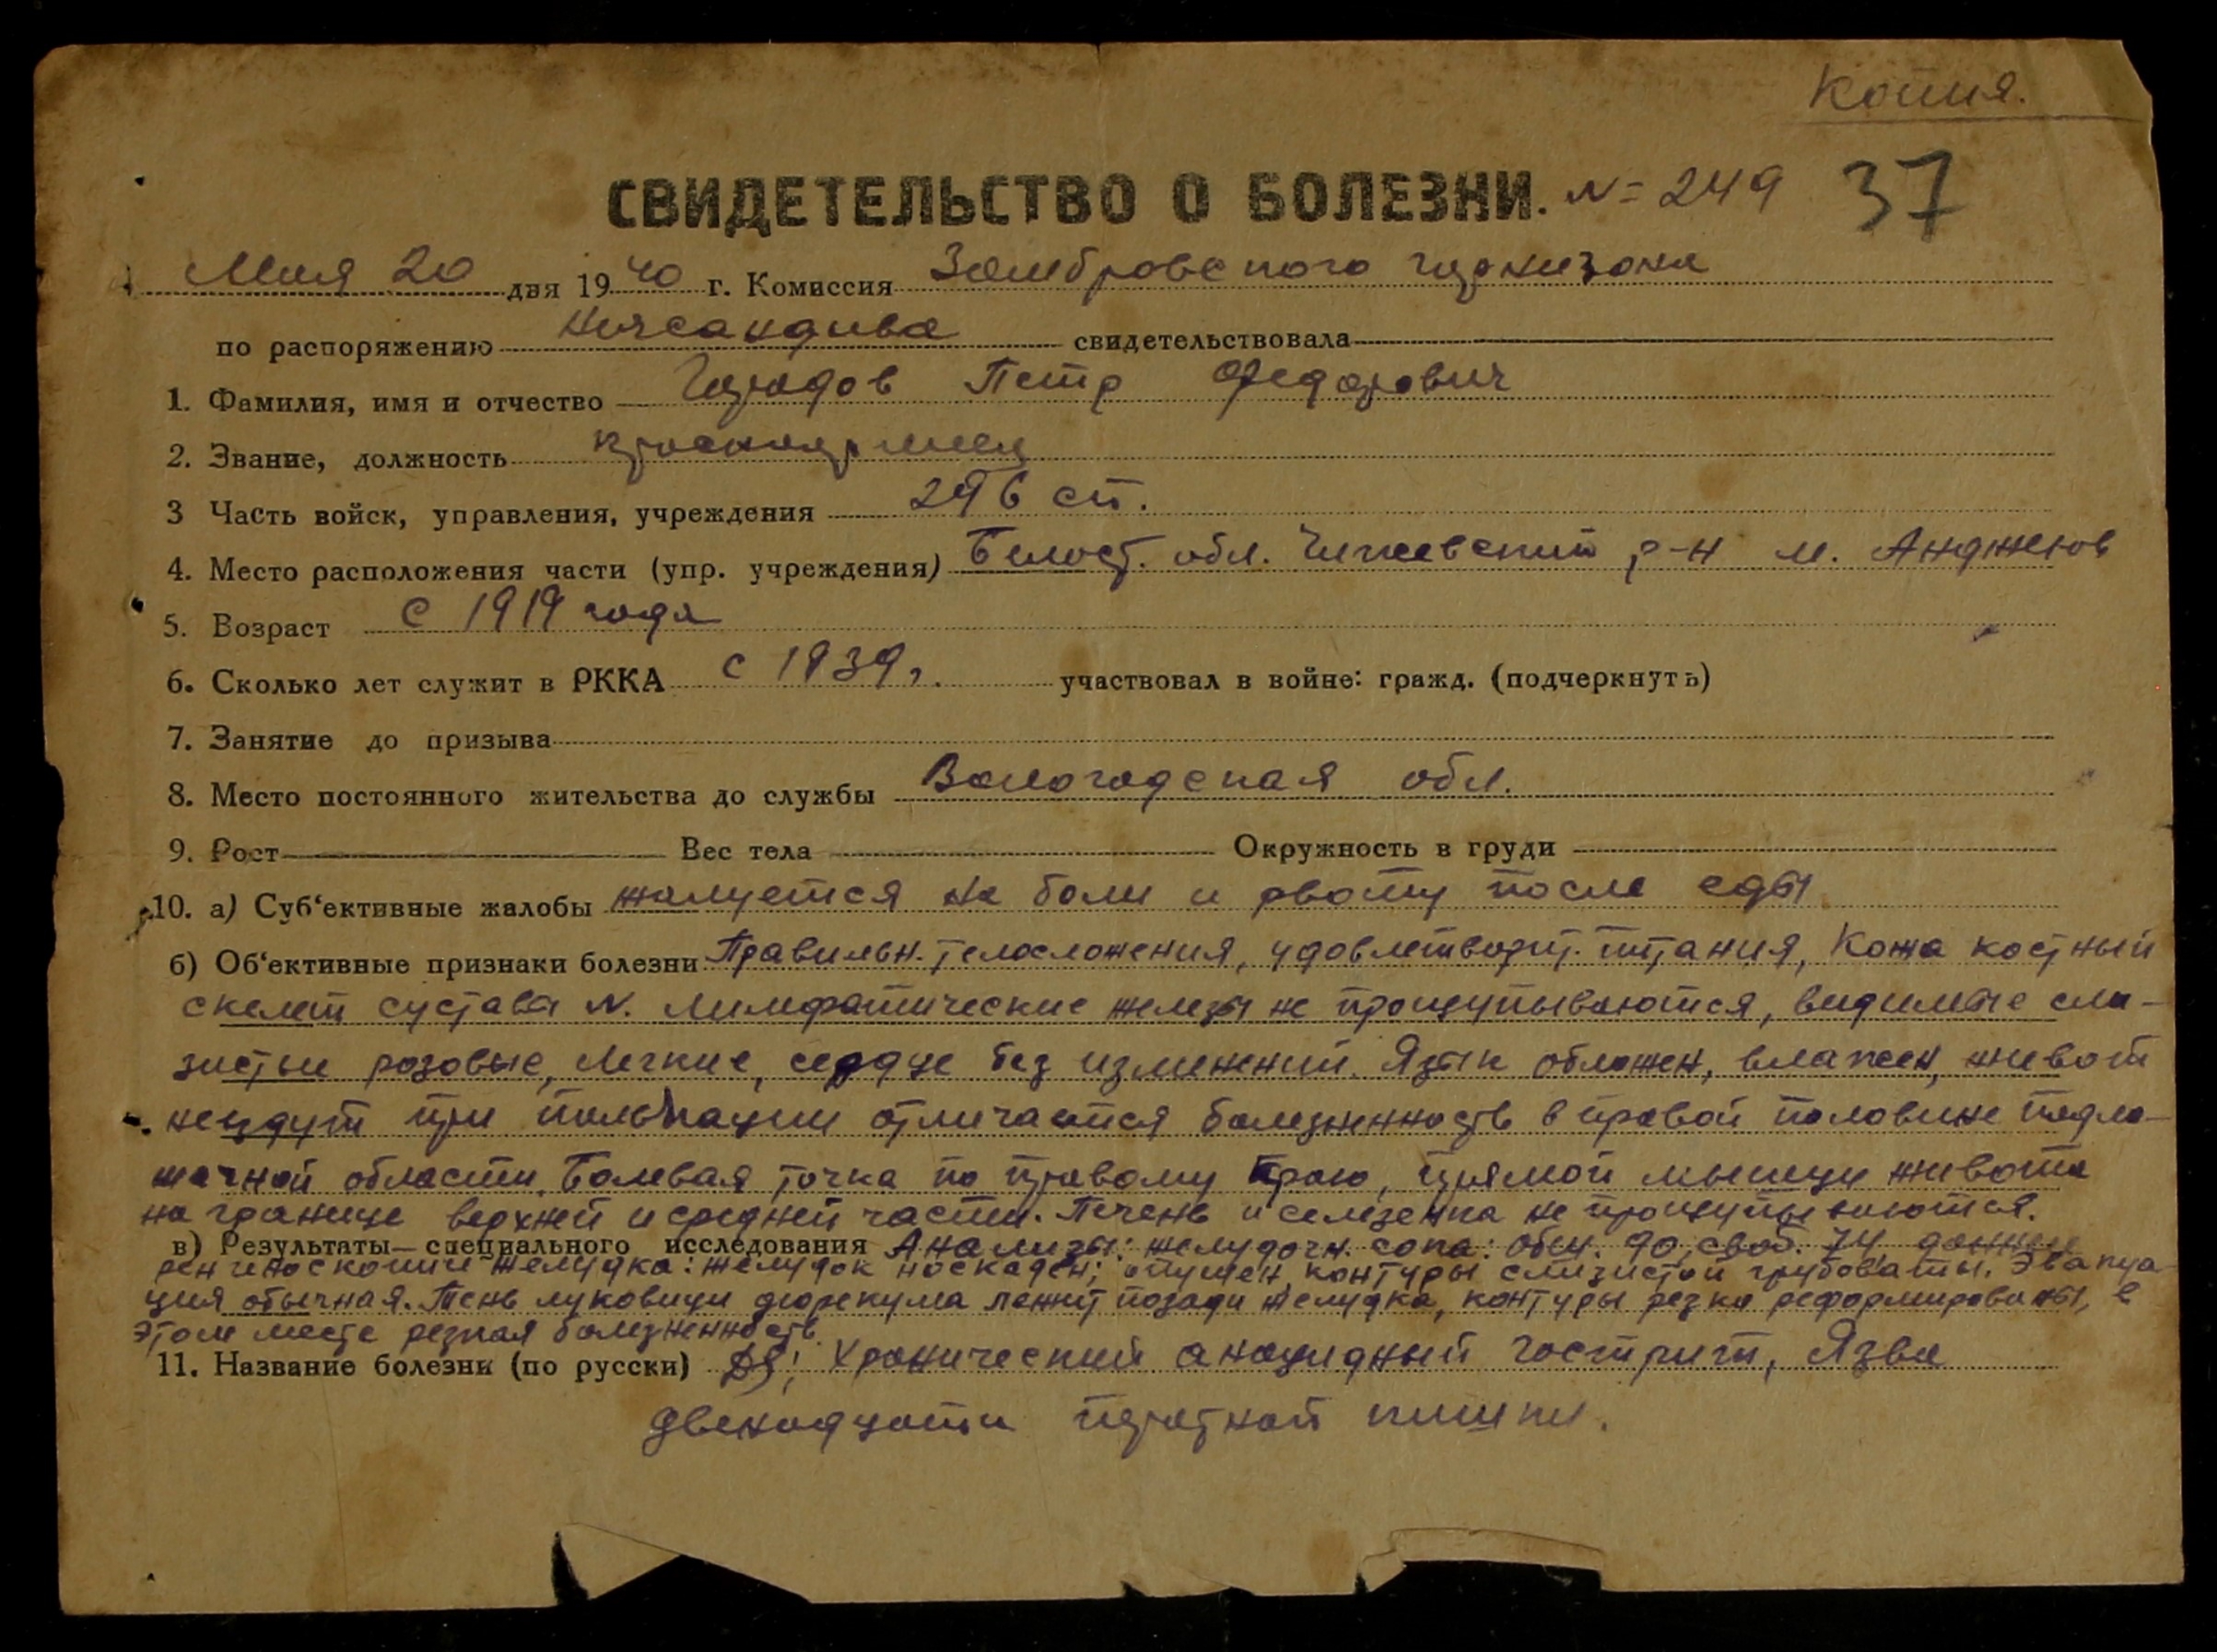 Копия.
СВИДЕТЕЛЬСТВО О БОЛЕЗНИ. N= 249 37
Мая 20 дня 1940 г. Комиссия Замбровского гарнизона
по распоряжению Начсандива свидетельствовала
1. Фамилия, имя и отчество Петр Федорович
2. Звание, должность красноармеец
3 Часть войск, управления, учреждения 296 сп.
4. Место расположения части (упр. учреждения) Белост. обл. Чижевский р-н м. Анджеюв
5. Возраст с 1919 года
6. Сколько лет служит в РККА с 1939г. участвовал в войне: гражд. (подчеркнуть)
7. Занятие до призыва
8. Место постоянного жительства до службы Вологодская обл.
9. Рост Вес тела Окружность в груди
10. а) Суб'ективные жалобы жалуется на боли и рвоту после еды
б) Об'ективные признаки болезни Правильн. телосложения, удовлетворит. питания, Кожа костный
скелет сустава N. Лимфатические железы не прощупываются, видимые сли-
зистые розовые, Легкие, сердце без изменений. Язык обложен, влажен, живот
не вздут при пальпации отличается болезненность в правой половине подло-
жечной области. Болевая точка по правому краю, прямой мышцы живота
на границе верхней и средней части. Печень и селезенка не прощупываются.
в) Результаты специального исследования Анализы: желудочн. сока: общ. 90, своб. 74 данные
рентгеноскопии желудка: желудок опущен, контуры слизистой грубоваты. Эвакуа-
ция обычная. Тень луковицы лежит позади желудка, контуры резко деформированы, в
этом месте резкая болезненность.
11. Название болезни (по русски) Ds; Хронический анацидный гастрит, Язва
двенадцати перстной кишки.